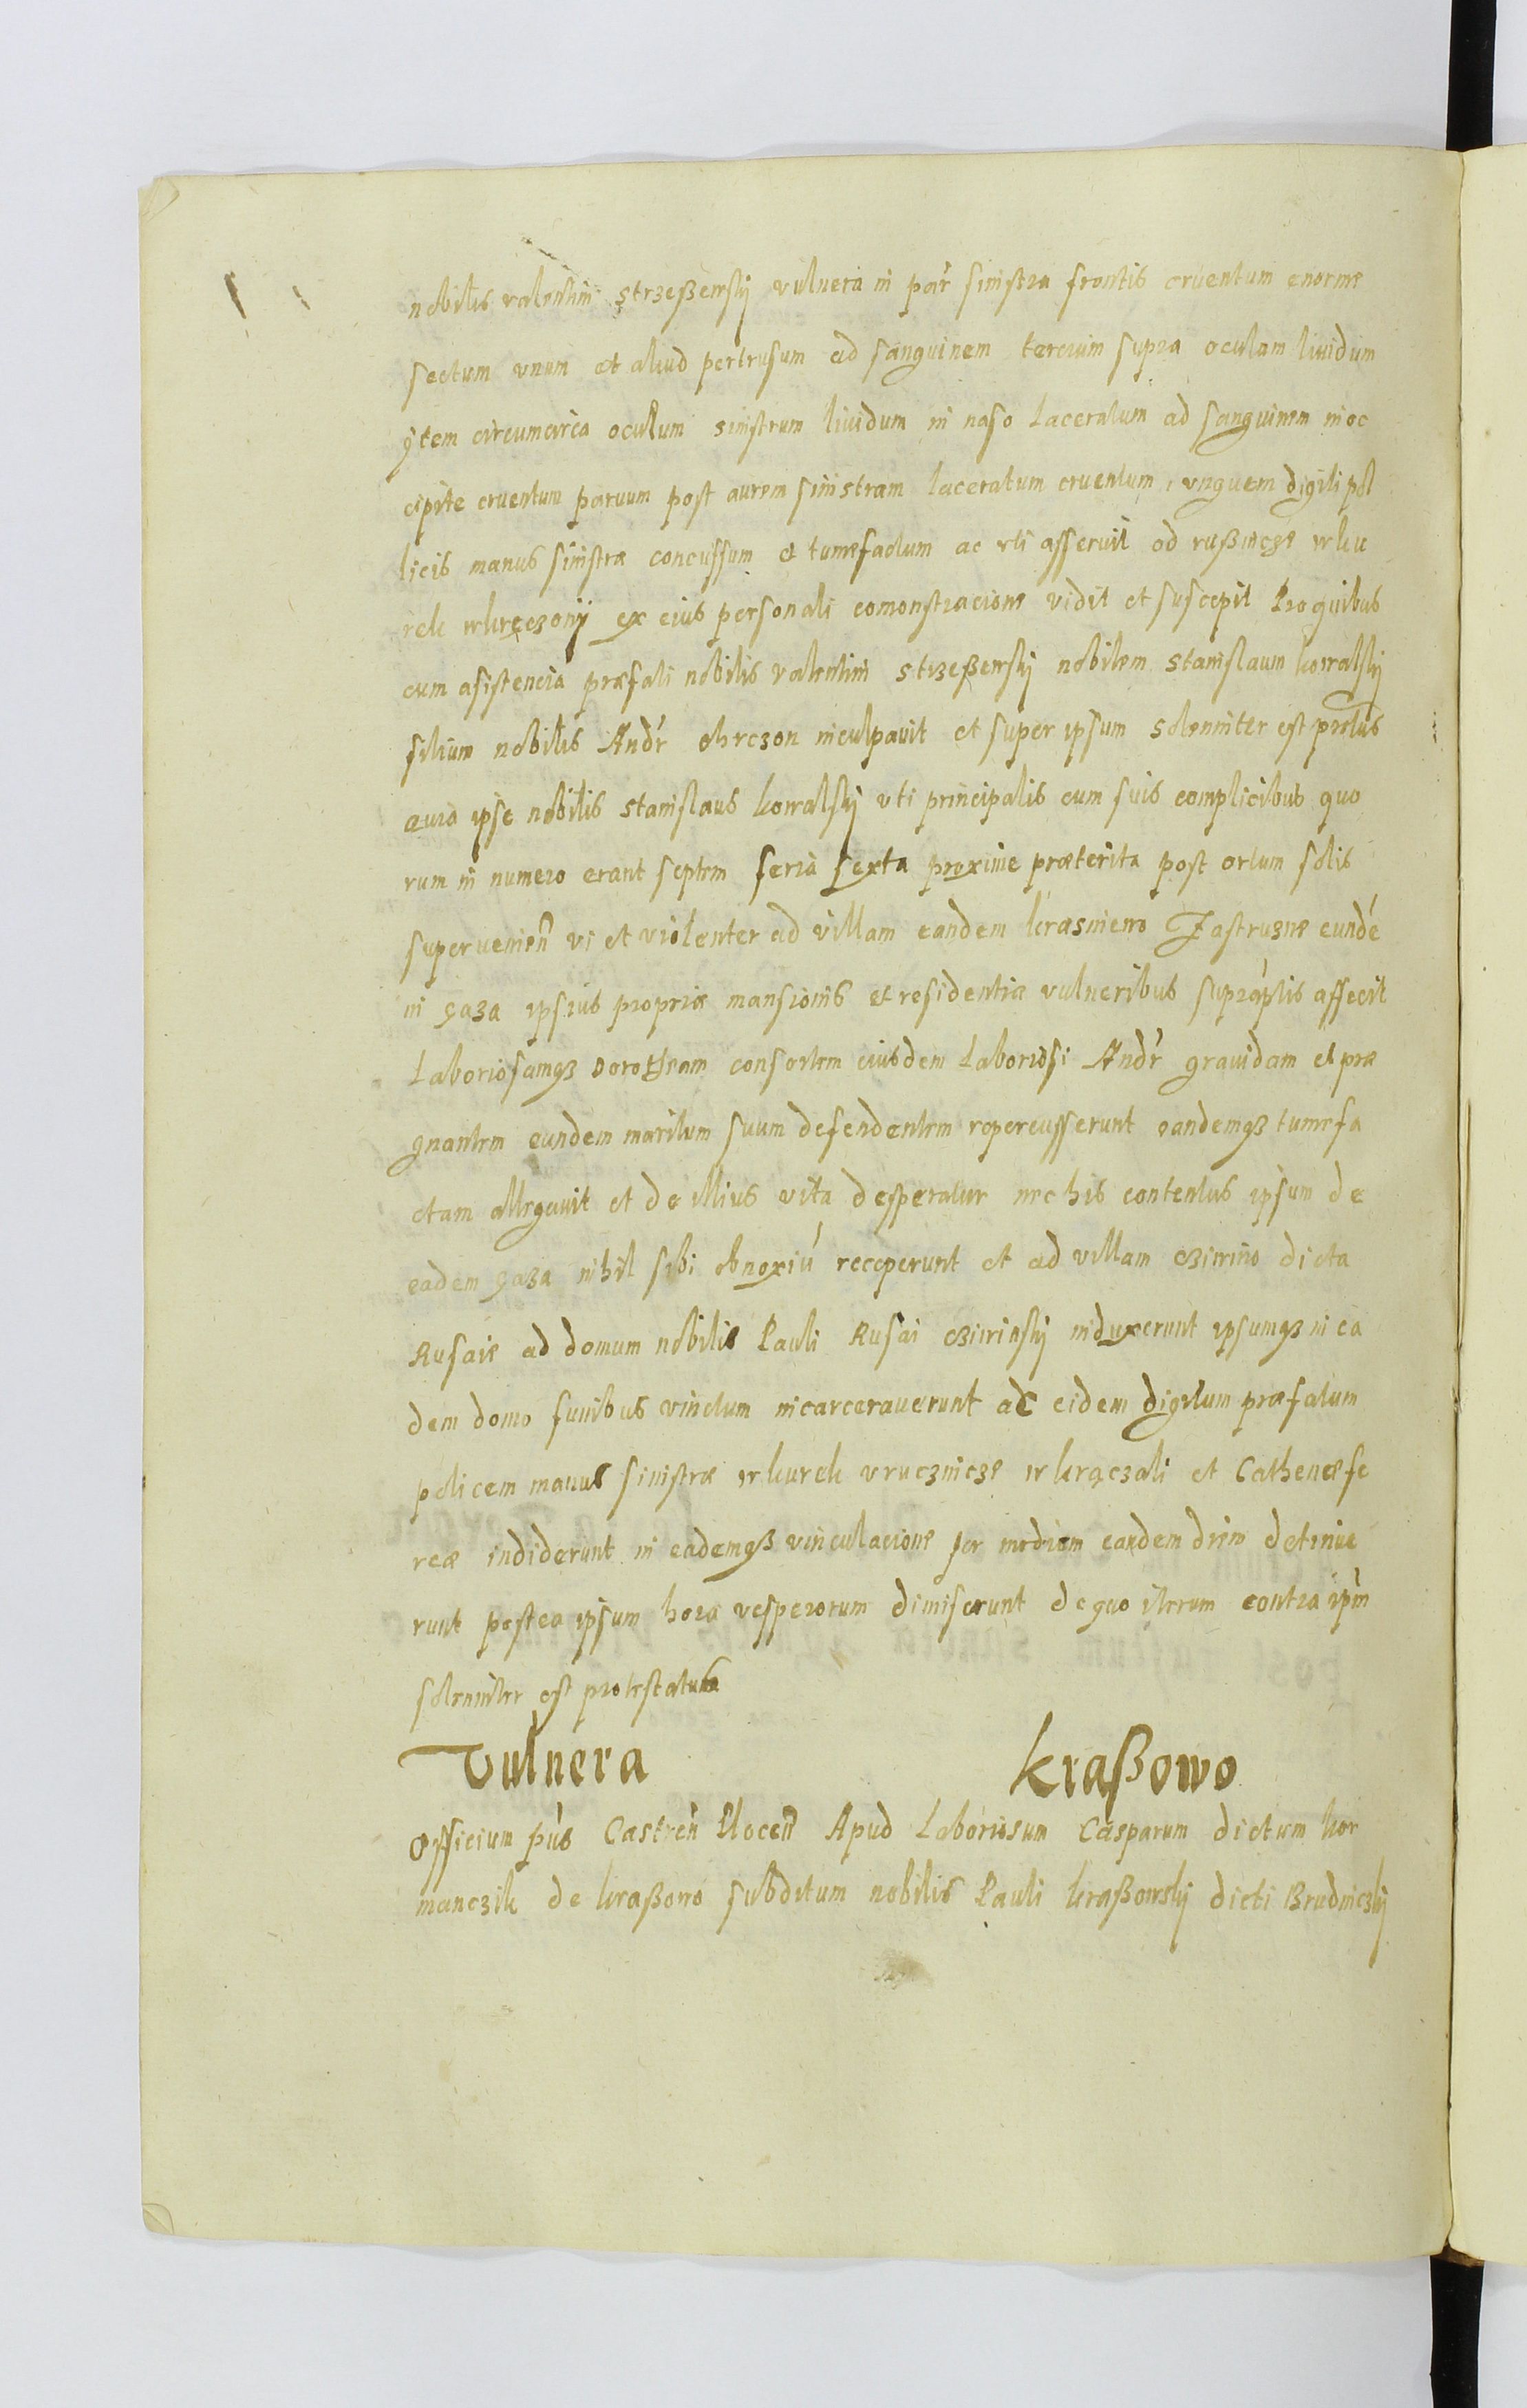 nobilis valentini strzeßewsky vulnera in par sinistra frontis cruentum enorme
sectum vnum et aliud pertrusum ad sanguinem tercium supra oculum liuidum
ytem circumcirca oculum sinistrum liuidum in naso laceratum ad sanguinem in oc
cipite cruentum paruum post aurem sinistram laceratum cruentum, vnguem digiti pol
licis manus sinistræ concussum et tumefactum ac vti asseruit od rußnicze wku
rek wkręczony ex eius personali comonstracione vidit et suscepit Pro quibus
cum asistencia præfati nobilis valentini strzeßewsky nobilem stanislaum kowalsky
filium nobilis Andr ohrczon inculpauit et super ipsum solenniter est protus
quia ipse nobilis stanislaus kowalsky vti principalis cum suis complicibus quo
rum in numero erant septem feria sexta proxime præterita post ortum solis
superuenien vi et violenter ad villam eandem krasniewo Jastruzne eunde
in gaza ipsius propriæ mansionis et residentiæ vulneribus supraptis affecit
Laboriosamqz dorotheam consortem eiusdem Laboriosi Andr grauidam et præ
gnantem eundem maritum suum defendentem repercusserunt eandemqz tumefa
ctam allegauit et de illius vita desperatur nec his contentus ipsum de
eadem gaza nihil sibi obnoxiu receperunt et ad villam cziwino dicta
Rusaie ad domum nobilis Pauli Rusai cziwinsky induxerunt ipsumqz in ea
dem domo funibus vinctum incarcerauerunt ac eidem digitum præfatum
policem manus sinistræ wkurek vrucznicze wkręczali et Cathenas fe
reæ indiderunt in eademqz vinculacione per mediam eandem diem detinue
runt postea ipsum hora vesperorum dimiserunt de quo iterum contra ipm
solenniter est protestatus
Vulnera kraßowo
Officium pus Castren Plocen Apud Laboriosum Casparum dictum kor
manczik de kraßowo subditum nobilis Pauli kraßowsky dicti Brudniczky